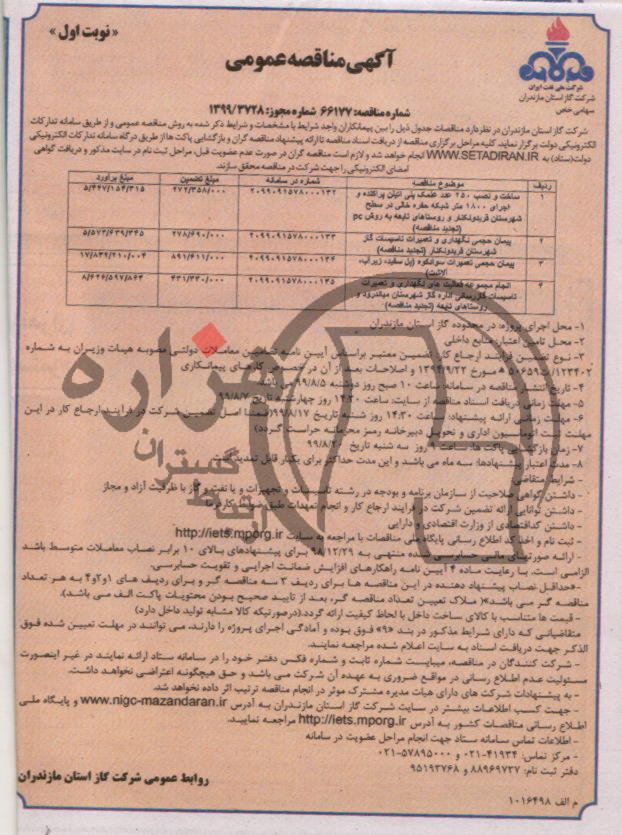 «نوبت اول»
شرکت ملی نفت ایران
شرکت گاز استان مازندران
سهامی خاص
آگهی مناقصه عمومی
شماره مناقصه: ۶۶۱۷۷ شماره مجوز: ۱۳۹۹/۳۷۲۸
شرکت گاز استان مازندران در نظر دارد مناقصات جدول ذیل را بین پیمانکاران واجد شرایط با مشخصات و شرایط ذکر شده به روش مناقصه عمومی و از طریق سامانه تدارکات
الکترونیکی دولت برگزار نماید. کلیه مراحل برگزاری مناقصه از دریافت اسناد مناقصه تا ارائه پیشنهاد مناقصه گران و بازگشایی پاکت ها از طریق درگاه سامانه تدارکات الکترونیکی
دولت(ستاد) به WWW.SETADIRAN.IR انجام خواهد شد و لازم است مناقصه گران در صورت عدم عضویت قبلی، مراحل ثبت نام در سایت مذکور و دریافت گواهی
امضای الکترونیکی را جهت شرکت در مناقصه محقق سازند.
ردیف موضوع مناقصه شماره در سامانه مبلغ تضمین مبلغ برآورد
۱ ساخت و نصب ۲۵۰ عدد علمک پلی اتیلن پراکنده و ۲۰۹۹۰۹۱۵۷۸۰۰۰۱۳۲ ۲۷۲/۳۵۸/۰۰۰ ۵/۴۴۷/۱۵۴/۳۱۵
اجرای ۱۸۰۰ متر شبکه حفره خالی در سطح
شهرستان فریدونکنار و روستاهای تابعه به روش pc
(تجدید مناقصه)
۲ پیمان حجمی نگهداری و تعمیرات تاسیسات گاز ۲۰۹۹۰۹۱۵۷۸۰۰۰۱۳۳ ۲۷۸/۶۹۰/۰۰۰ ۵/۵۷۲/۶۳۹/۳۴۵
شهرستان فریدونکنار (تجدید مناقصه)
۳ پیمان حجمی تعمیرات سوادکوه (پل سفید، زیرآب، ۲۰۹۹۰۹۱۵۷۸۰۰۰۱۳۴ ۸۹۱/۶۱۱/۰۰۰ ۱۷/۸۳۲/۲۱۰/۰۰۴
آلاشت)
۴ انجام مجموعه فعالیت های نگهداری و تعمیرات ۲۰۹۹۰۹۱۵۷۸۰۰۰۱۳۵ ۴۳۱/۳۳۰/۰۰۰ ۸/۶۲۶/۵۹۷/۸۶۴
تاسیسات گازرسانی اداره گاز شهرستان میاندرود و
روستاهای تابعه (تجدید مناقصه)
۱- محل اجرای پروژه: در محدوده گاز استان مازندران
۲- محل تامین اعتبار: منابع داخلی
۳- نوع تضمین فرآیند ارجاع کار: تضمین معتبر براساس آیین نامه تضامین معاملات دولتی مصوبه هیات وزیران به شماره
۱۲۳۴۰۲/ت۵۰۶۵۹ ه مورخ ۱۳۹۴/۹/۲۲ و اصلاحات بعد از آن در خصوص کارهای پیمانکاری
۴- تاریخ انتشار مناقصه در سامانه: ساعت ۱۰ صبح روز دوشنبه ۹۹/۸/۵ می باشد
۵- مهلت زمانی دریافت اسناد مناقصه از سایت: ساعت ۱۴:۳۰ روز چهارشنبه تاریخ ۹۹/۸/۷
۶- مهلت زمانی ارائه پیشنهاد: ساعت ۱۴:۳۰ روز شنبه تاریخ ۹۹/۸/۱۷(ضمنا اصل تضمین شرکت در فرآیند ارجاع کار در این
مهلت تحت اتوماسیون اداری و تحویل دبیرخانه رمسز محرمانه حراست گردد)
۷- زمان بازگشایی پاکت ها: ساعت ۹ روز سه شنبه تاریخ ۹۹/۸/۲۰
۸- مدت اعتبار پیشنهادها: سه ماه می باشد و این مدت حداکثر برای یکبار قابل تمدید است
- شرایط متقاضی:
- داشتن گواهی صلاحیت از سازمان برنامه و بودجه در رشته تاسیسات و تجهیزات و یا نفت و گاز با ظرفیت آزاد و مجاز
- داشتن توانایی ارائه تضمین شرکت در فرآیند ارجاع کار و انجام تعهدات طبق فرمت کارفرما
- داشتن کداقتصادی از وزارت اقتصادی و دارایی
- ثبت نام و اخذ کد اطلاع رسانی پایگاه ملی مناقصات با مراجعه به سایت http://iets.mporg.ir
- ارائه صورتهای مالی حسابرسی شده منتهی به ۹۸/۱۲/۲۹ برای پیشنهادهای بالای ۱۰ برابر نصاب معاملات متوسط باشد
الزامی است. با رعایت ماده ۴ آیین نامه راهکارهای افزایش ضمانت اجرایی و تقویت حسابرسی.
-حداقل نصاب پیشنهاد دهنده در این مناقصه ها برای ردیف ۳ سه مناقصه گر و برای ردیف های ۱و۲و۴ به هر تعداد
مناقصه گر می باشد»( ملاک تعیین تعداد مناقصه گر، بعد از تایید صحیح بودن محتویات پاکت الف می باشد).
- قیمت ها متناسب با کالای ساخت داخل با لحاظ کیفیت ارائه گردد.(درصورتیکه کالا مشابه تولید داخل دارد)
متقاضیانی که دارای شرایط مذکور در بند «۹» فوق بوده و آمادگی اجرای پروژه را دارند، می توانند در مهلت تعیین شده فوق
الذکر جهت دریافت اسناد به سایت اعلام شده مراجعه نمایند.
- شرکت کنندگان در مناقصه، میبایست شماره ثابت و شماره فکس دفتر خود را در سامانه ستاد ارائه نمایند در غیر اینصورت
مسئولیت عدم اطلاع رسانی در مواقع ضروری به عهده آن شرکت می باشد و حق هیچگونه اعتراضی نخواهد داشت.
- به پیشنهادات شرکت های دارای هیات مدیره مشترک موثر در انجام مناقصه ترتیب اثر داده نخواهد شد.
- جهت کسب اطلاعات بیشتر در سایت شرکت گاز استان مازندران به آدرس www.nigc-mazandaran.ir و پایگاه ملی
اطلاع رسانی مناقصات کشور به آدرس http://iets.mporg.ir مراجعه نمایید.
- اطلاعات تماس سامانه ستاد جهت انجام مراحل عضویت در سامانه
- مرکز تماس: ۴۱۹۳۴-۰۲۱ و ۵۷۸۹۵۰۰۰-۰۲۱
دفتر ثبت نام: ۸۸۹۶۹۷۳۷ و ۹۵۱۹۳۷۶۸
روابط عمومی شرکت گاز استان مازندران
م الف ۱۰۱۶۴۹۸
هزاره
گستران